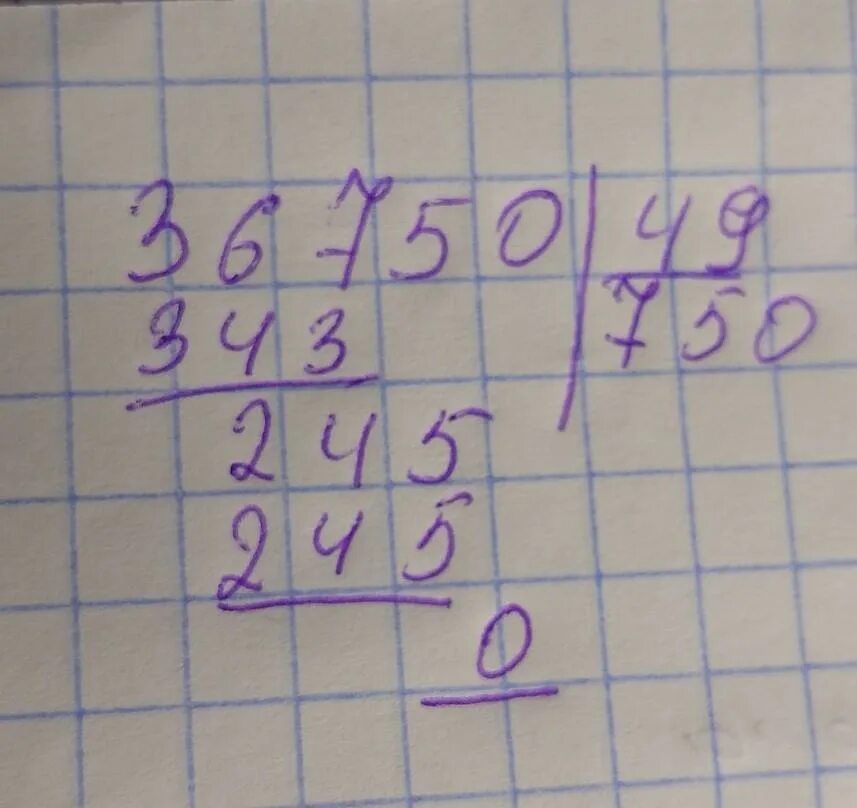 36750 | 49
343 | 750
245
245
0